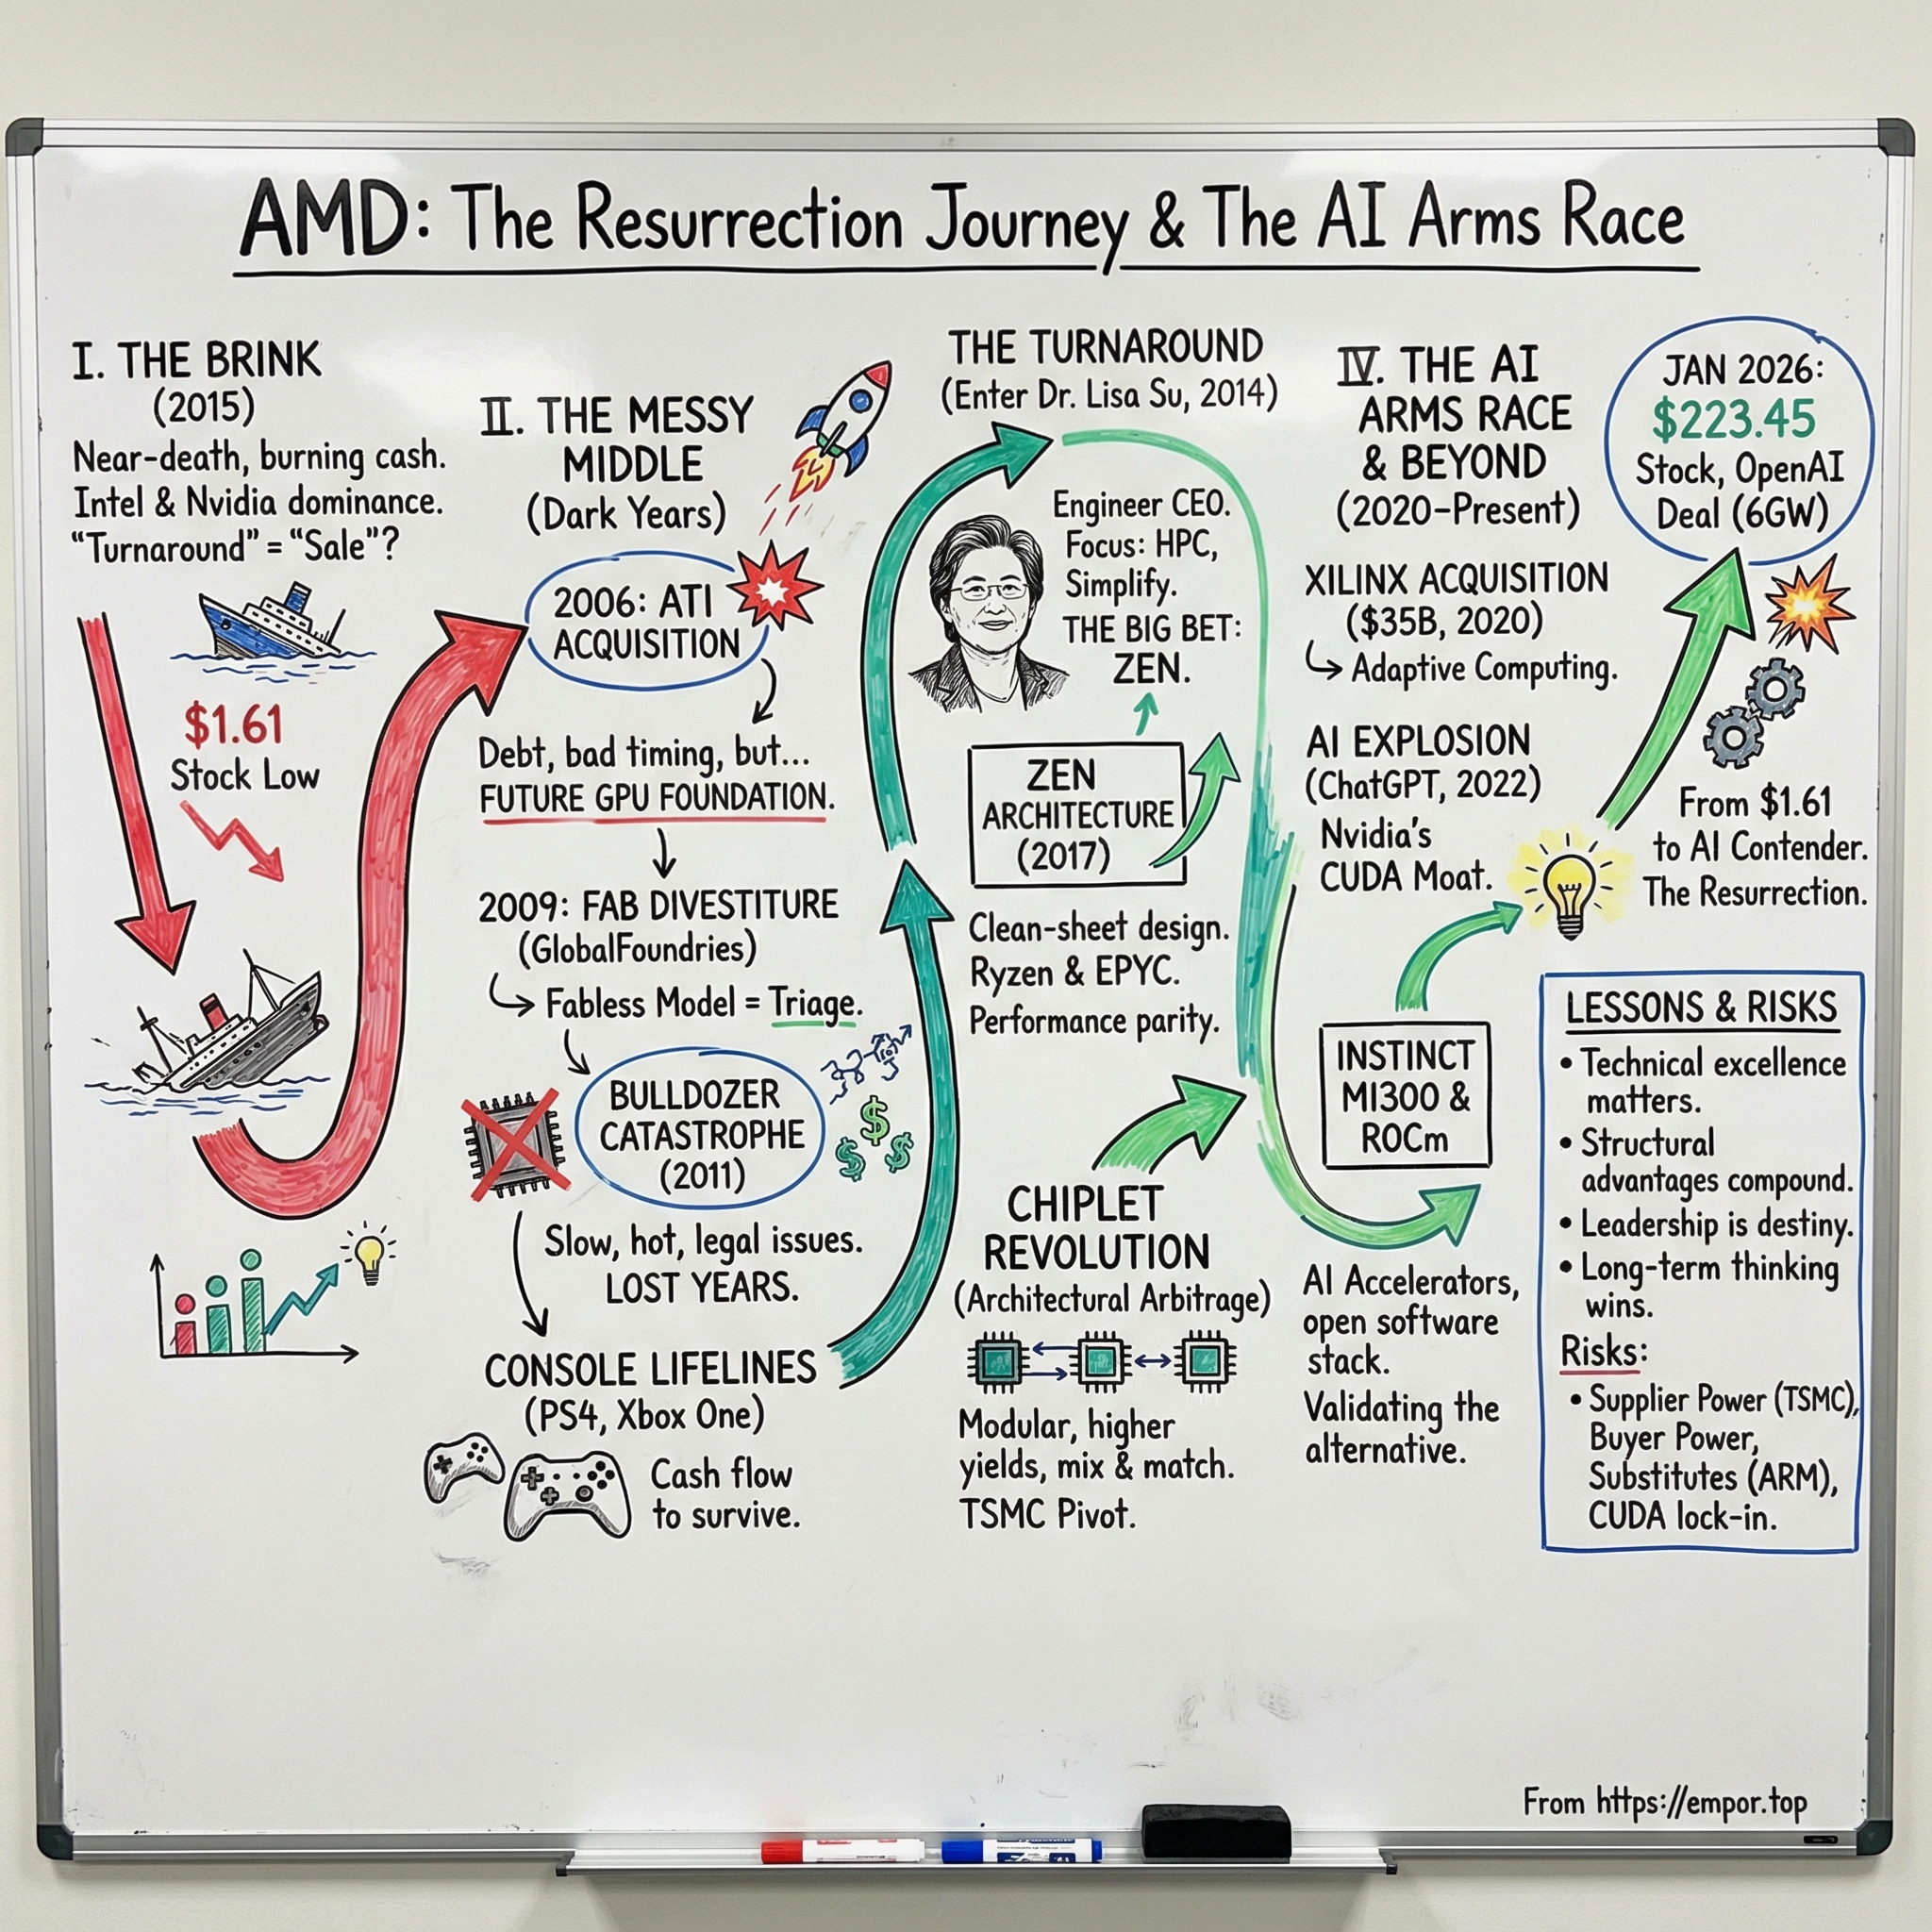 AMD: The Resurrection Journey & The AI Arms Race
I. THE BRINK
(2015)
Near-death, burning cash.
Intel & Nvidia dominance.
“Turnaround” = “Sale”?
$1.61
Stock Low
II. THE MESSY
MIDDLE
(Dark Years)
2006: ATI
ACQUISITION
Debt, bad timing, but...
FUTURE GPU FOUNDATION.
2009: FAB DIVESTITURE
(GlobalFoundries)
Fabless Model = Triage.
BULLDOZER
CATASTROPHE
(2011)
$
$
$
Slow, hot, legal issues.
LOST YEARS.
CONSOLE LIFELINES
(PS4, Xbox One)
Cash flow
to survive.
THE TURNAROUND
(Enter Dr. Lisa Su, 2014)
Engineer CEO.
Focus: HPC,
Simplify.
THE BIG BET:
ZEN.
ZEN
ARCHITECTURE
(2017)
Clean-sheet design.
Ryzen & EPYC.
Performance parity.
CHIPLET
REVOLUTION
(Architectural Arbitrage)
Modular, higher
yields, mix & match.
TSMC Pivot.
IV. THE AI
ARMS RACE
& BEYOND
(2020-Present)
XILINX ACQUISITION
($35B, 2020)
Adaptive Computing.
AI EXPLOSION
(ChatGPT, 2022)
Nvidia's
CUDA Moat.
INSTINCT
MI300 &
ROCm
AI Accelerators,
open software
stack.
Validating the
alternative.
JAN 2026:
$223.45
Stock, OpenAI
Deal (6GW)
From $1.61
to AI Contender.
The Resurrection.
LESSONS & RISKS
• Technical excellence
matters.
• Structural
advantages compound.
• Leadership is destiny.
• Long-term thinking
wins.
Risks:
• Supplier Power (TSMC),
Buyer Power,
Substitutes (ARM),
CUDA lock-in.
From https://empor.top